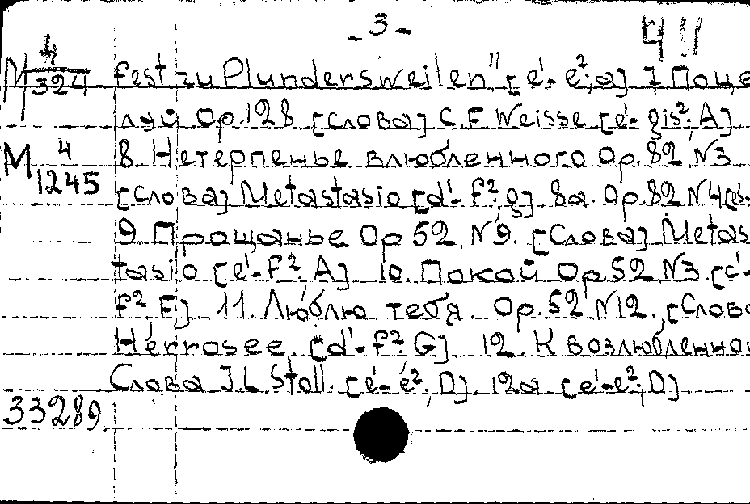 - 3 -
411
M 4/324 Fest zu Plundersweilen" [e¹- e²; a] 7 Поце
луй Op. 128 [слова] C. F. Weisse [e¹- gis²; A]
M 4/1245 8. Нетерпенье влюбленного Op. 82, N3
[Слова] Metastasio [d¹- f²; g] 8a. Op. 82 N4
9 Прощанье Op 52, N9. [Слова] Metas
tasio [e¹- f²; A] 10. Покой Op 52 N3 [c¹-
f² F] 11. Люблю тебя. Op. 52 N12. [Слова
Herrosee. [d¹- f²; G] 12. К возлюбленно
Слова J. L. Stoll. [e¹- e²; D], 12a [e¹- e²; D]
33289